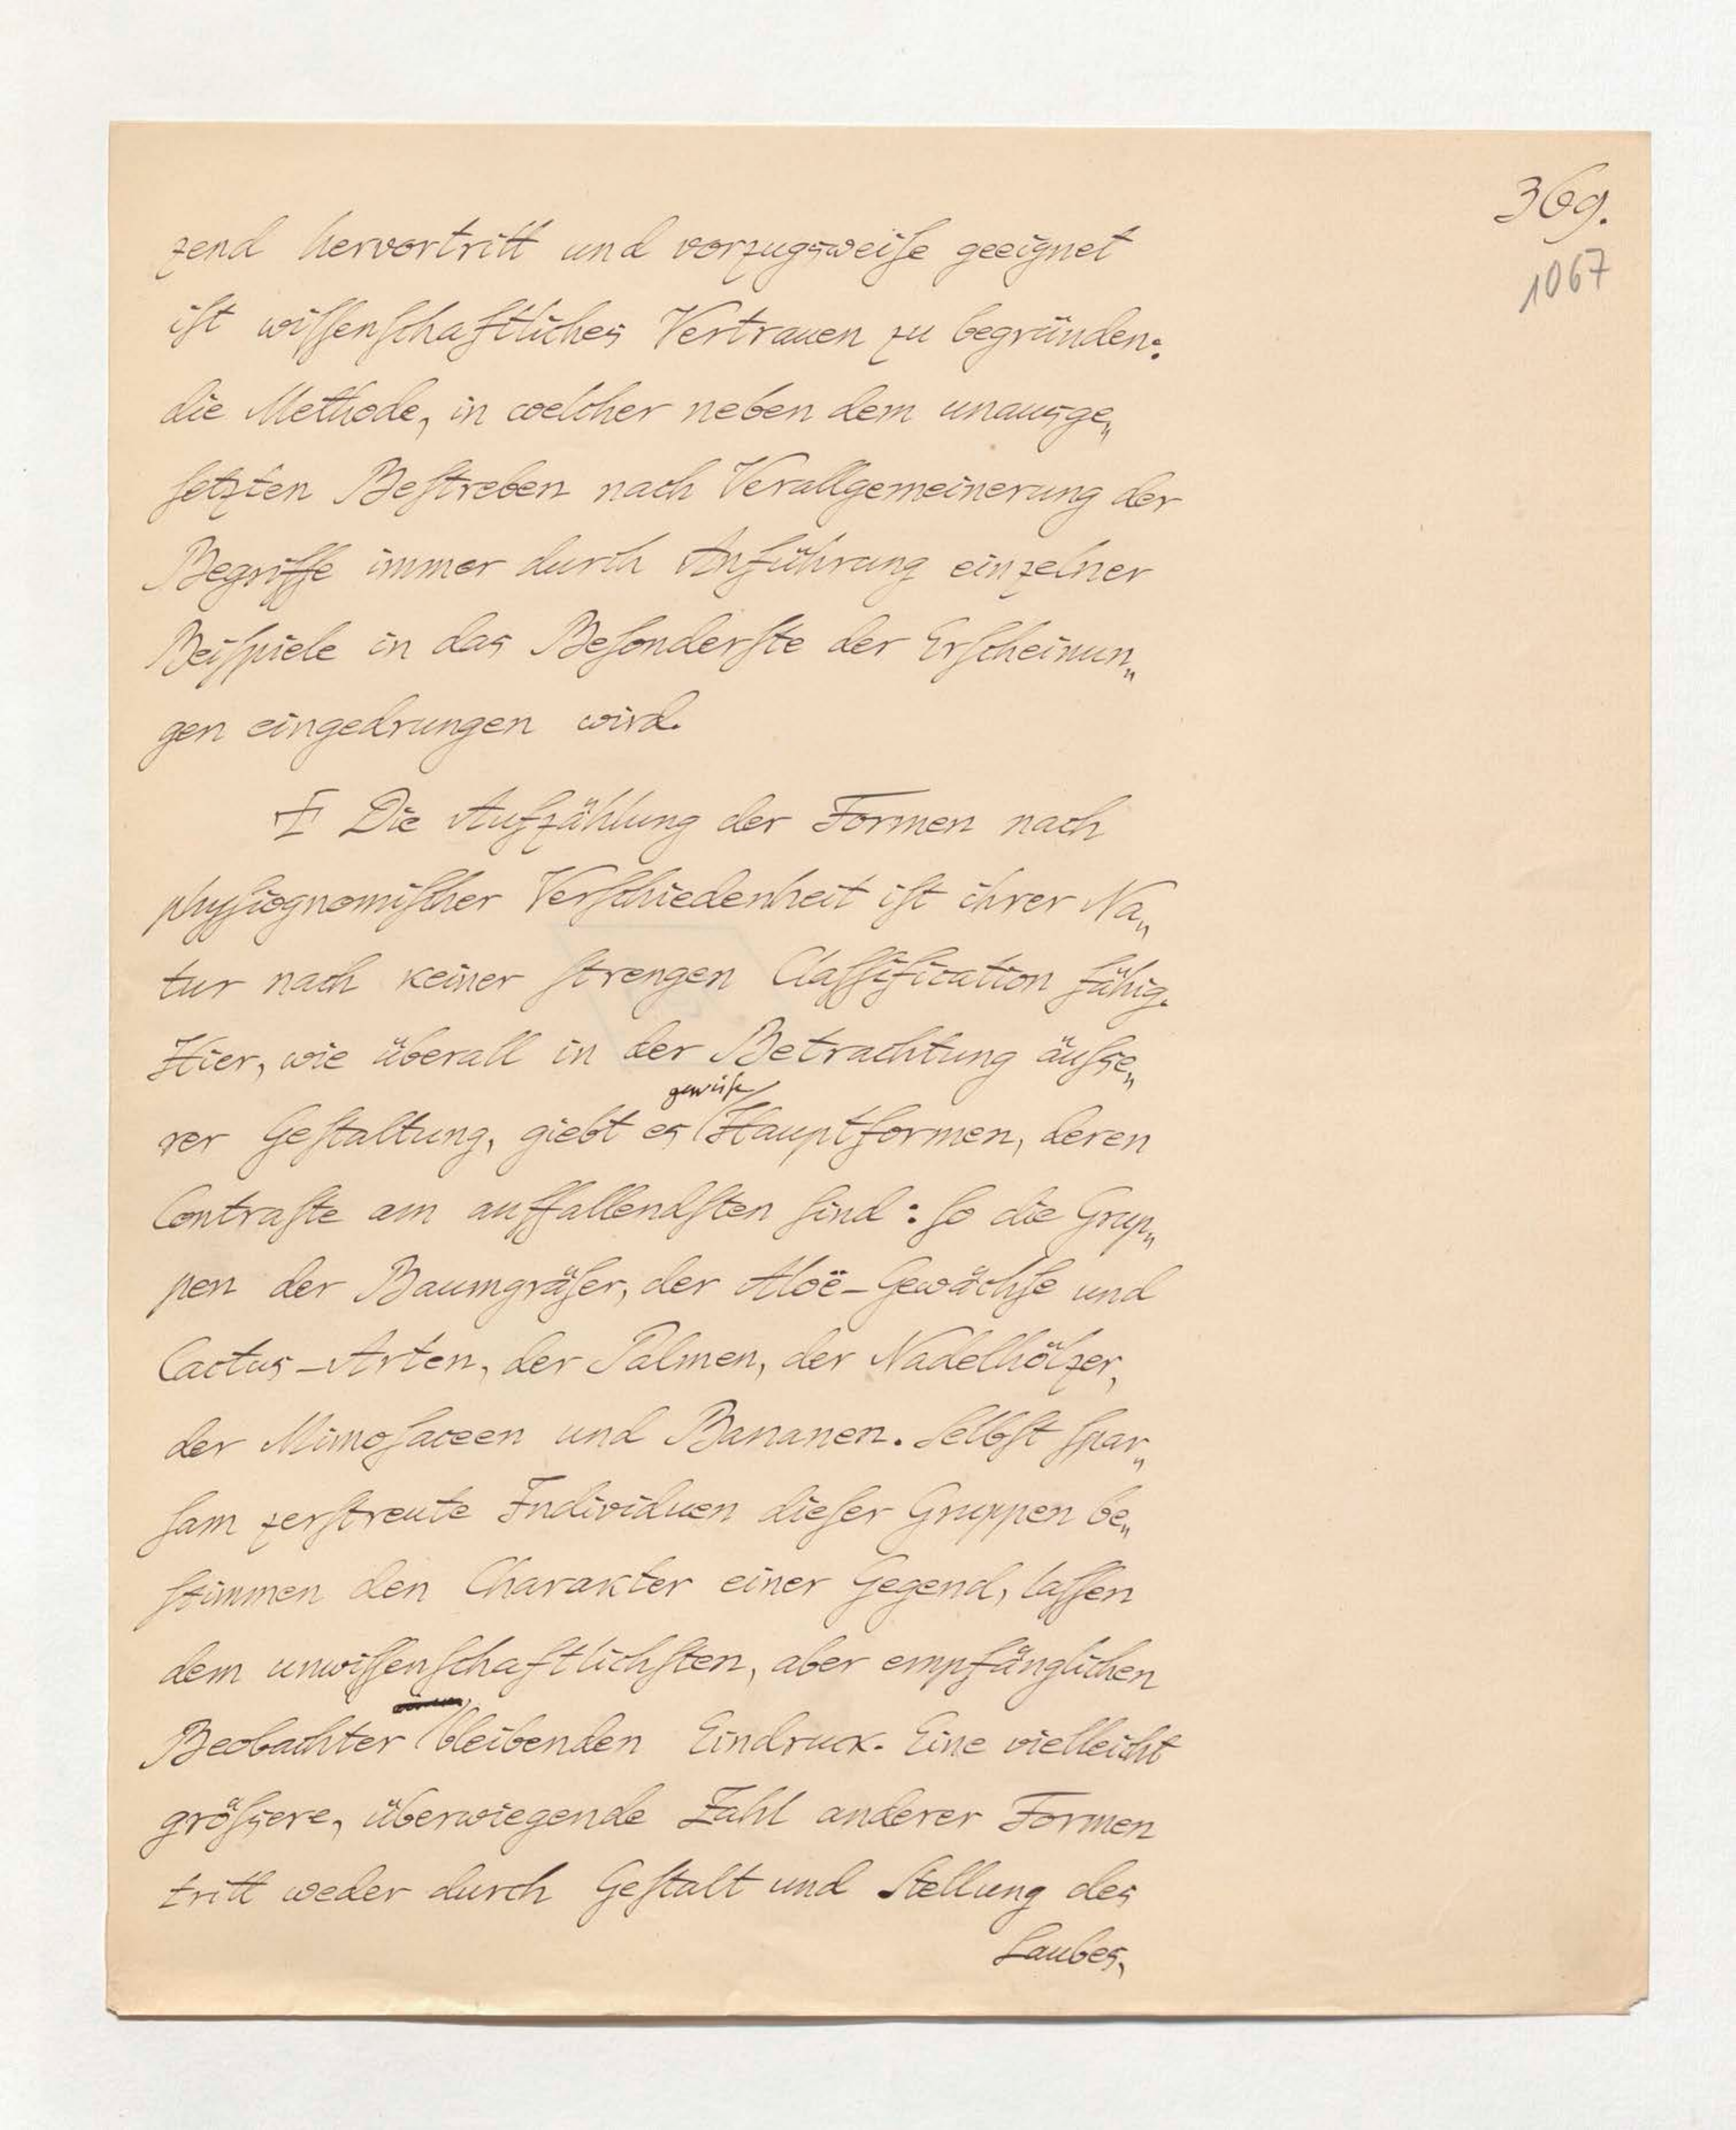 369.
1067
zend hervortritt und vorzugsweiſe geeignet
iſt wiſſenſchaftliches Vertrauen zu begründen:
die Methode, in welcher neben dem unausge„
ſetzten Beſtreben nach Verallgemeinerung der
Begriffe immer durch Anführung einzelner
Beiſpiele in das Beſonderſte der Erſcheinun„
gen eingedrungen wird.
I Die Aufzählung der Formen nach
phyſiognomiſcher Verſchiedenheit iſt ihrer Na„
tur nach keiner ſtrengen Claſſification fähig.
Hier, wie überall in der Betrachtung äuſse„
gewiſſe
rer Geſtaltung, giebt es Hauptformen, deren
Contraſte am auffallendſten ſind: ſo die Grup„
pen der Baumgräſer, der Aloë-Gewächſe und
Cactus-Arten, der Palmen, der Nadelhölzer,
der Mimoſaceen und Bananen. Selbſt ſpar„
ſam zerſtreute Individuen dieſer Gruppen be„
ſtimmen den Charakter einer Gegend, laſſen
dem unwiſſenſchaftlichſten, aber empfänglichen
Beobachter bleibenden Eindruck. Eine vielleicht
gröſsere, überwiegende Zahl anderer Formen
tritt weder durch Geſtalt und Stellung des
Laubes,